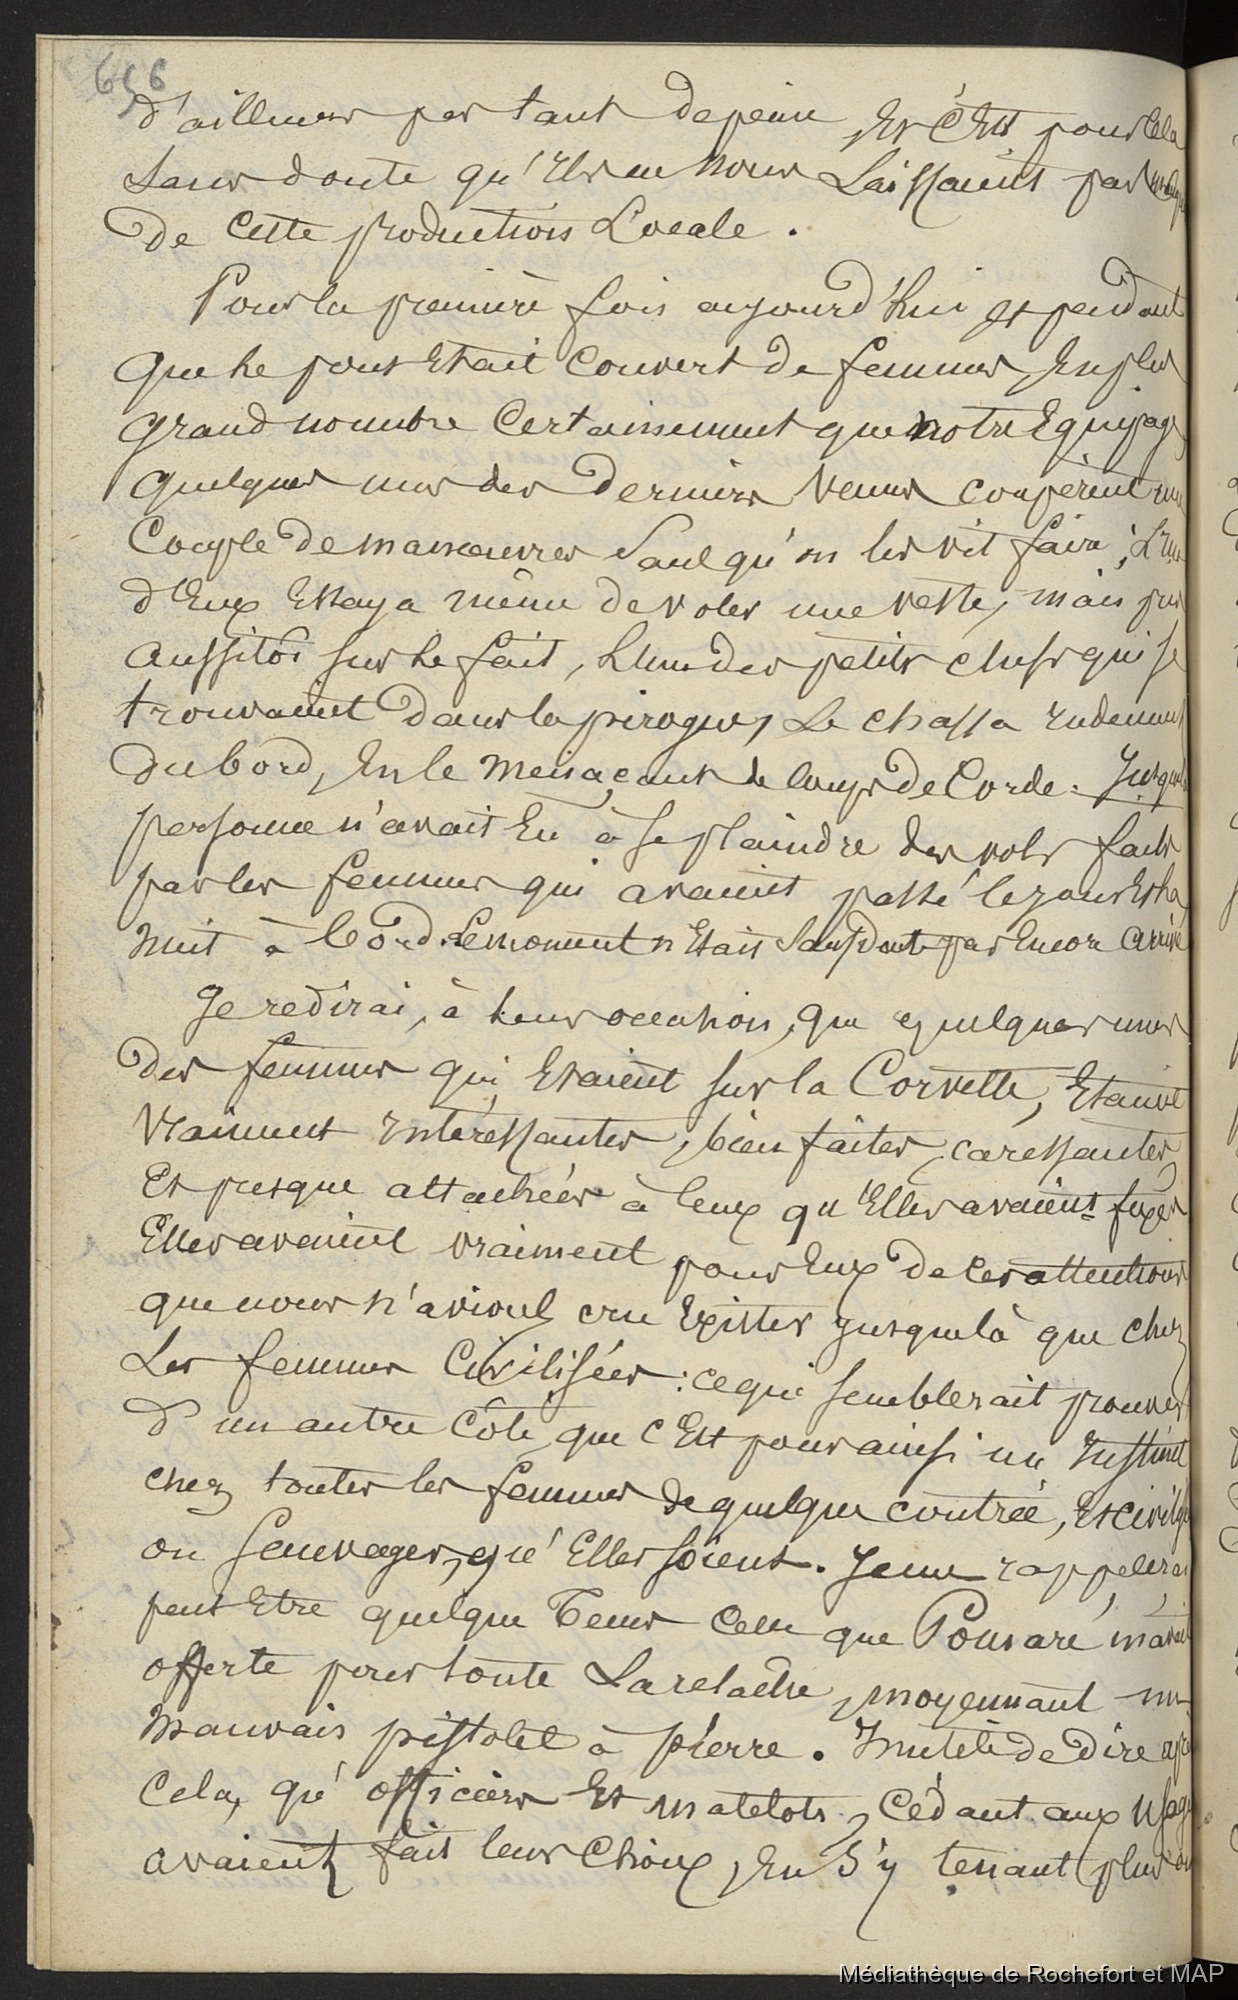 656
d'ailleurs pas tant de peine, Et c'Est pour cela
Sans doute qu'Ils ne nous Laissaient pas
de Cette production Locale.
Pour la première fois aujourd'hui Et pendant
Que le pont Etait Couvert de femmes, En plus
grand nombre Certainement que notre Equipage,
quelques uns des Derniers Venus coupèrent une
Couple de manœuvres Sans qu'on les vit faire ; L'un
d'Eux Essaya même de voler une veste, mais pris
Aussitôt sur le fait, L'un des petits chefs qui se
trouvaient dans la pirogue, Le chassa rudement
du bord, En le Menaçant de Coups de Corde. Jusques là
personne n'avait Eu à se plaindre des vols faits
par les femmes qui avaient passé le jour Et la
Nuit à bord. Le moment n'Etait Sans Doute pas Encore arrivé
Je redirai, à leur occasion, que quelques unes
des femmes qui Etaient sur la Corvette, Etaient
Vraiment Intéressantes, bien faites, caressantes,
Et presque attachées à Ceux qu'Elles avaient fixés
Elles avaient vraiment pour Eux de ces attentions
que nous n'avions cru Exister jusque là que chez
Les femmes Civilisées : ce qui semblerait prouver
d'un autre Côté que c'Est pour ainsi un Instinct
chez toutes les femmes de quelque contrée, Et civilisées
ou Sauvages, qu'Elles soient. Je me rappelerai
peut Etre quelque Tems Celle que Pomaré m'avait
offerte pour toute La relache, moyennant un
Mauvais pistolet à pierre. Inutile de dire après
Cela, qu'officiers Et matelots, Cédant aux usages
avaient fait leur Choix, En S'y tenant plus ou
Médiathèque de Rochefort et MAP